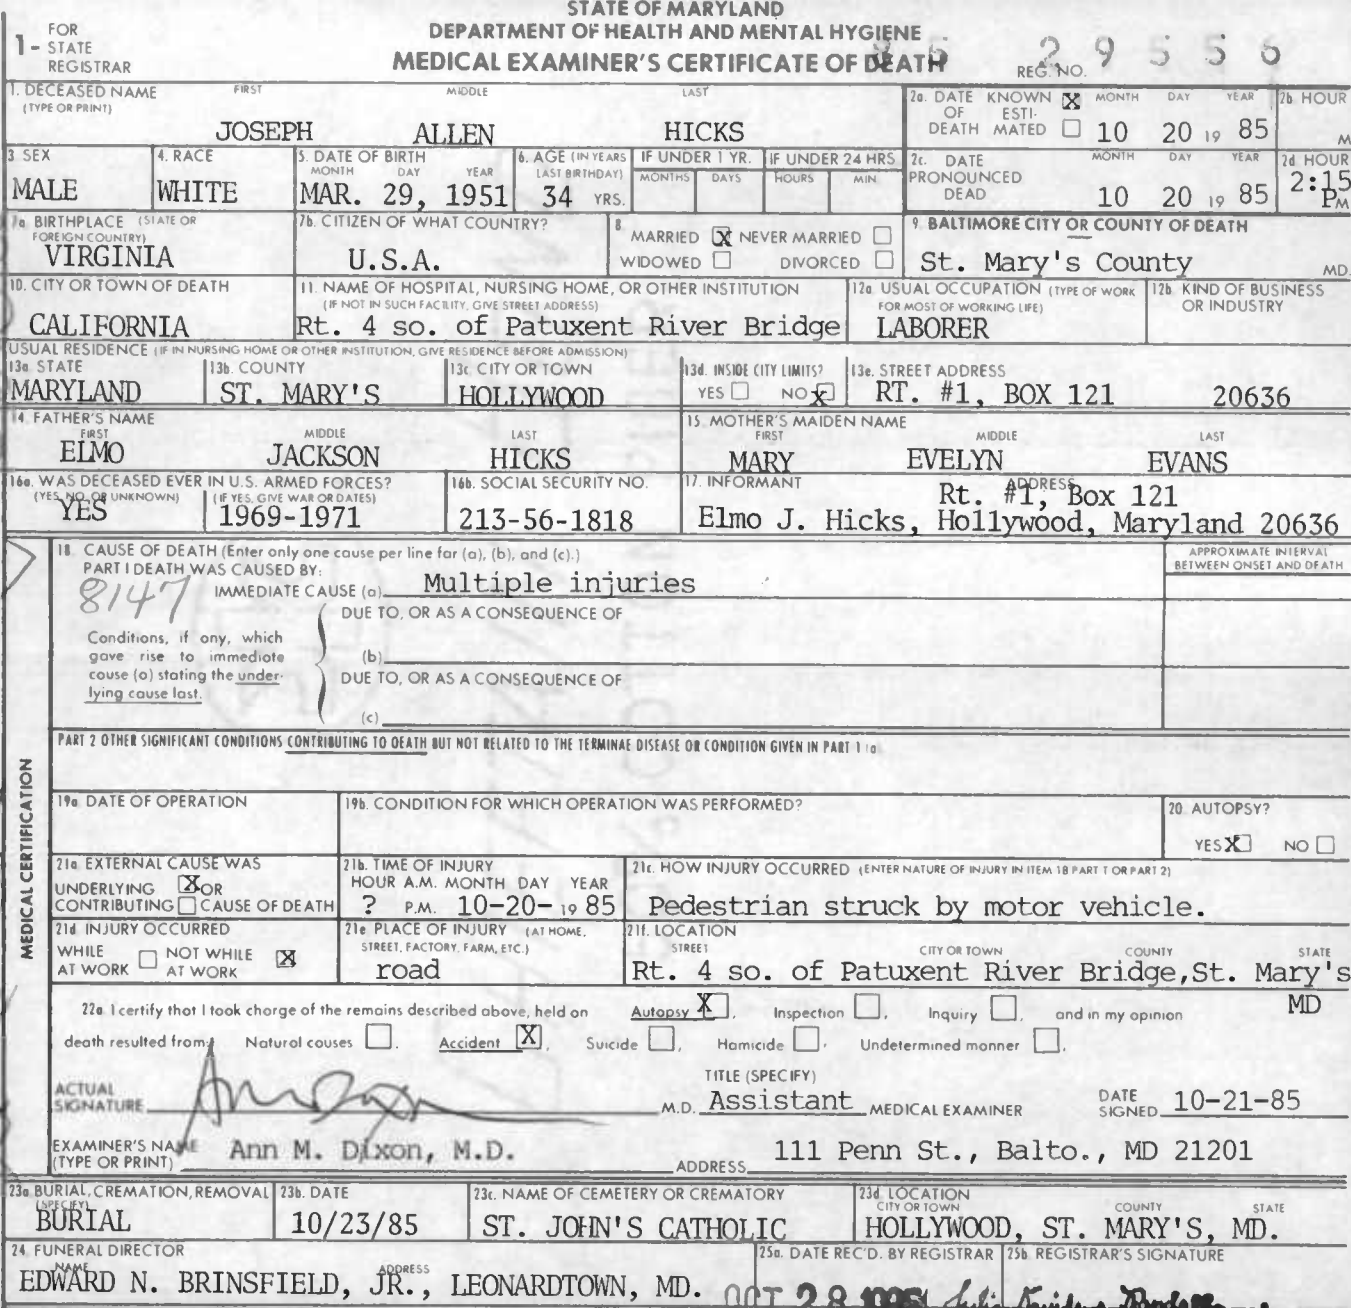 STATE OF MARYLAND
DEPARTMENT OF HEALTH AND MENTAL HYGIENE
MEDICAL EXAMINER'S CERTIFICATE OF DEATH
1- FOR STATE REGISTRAR
REG. NO. 85 29556
1. DECEASED NAME (TYPE OR PRINT) FIRST MIDDLE LAST
JOSEPH ALLEN HICKS
2a. DATE OF DEATH KNOWN X ESTIMATED MONTH DAY YEAR
10 20 19 85
2b. HOUR M
3 SEX MALE
4. RACE WHITE
5. DATE OF BIRTH MONTH DAY YEAR
MAR. 29, 1951
6. AGE (IN YEARS LAST BIRTHDAY) 34 YRS.
IF UNDER 1 YR. MONTHS DAYS
IF UNDER 24 HRS HOURS MIN
2c. DATE PRONOUNCED DEAD MONTH DAY YEAR
10 20 19 85
2d HOUR 2:15 P M
7a BIRTHPLACE (STATE OR FOREIGN COUNTRY)
VIRGINIA
7b. CITIZEN OF WHAT COUNTRY?
U.S.A.
8 MARRIED X NEVER MARRIED
WIDOWED DIVORCED
9. BALTIMORE CITY OR COUNTY OF DEATH
St. Mary's County MD.
10. CITY OR TOWN OF DEATH
CALIFORNIA
11. NAME OF HOSPITAL, NURSING HOME, OR OTHER INSTITUTION
(IF NOT IN SUCH FACILITY, GIVE STREET ADDRESS)
Rt. 4 so. of Patuxent River Bridge
12a. USUAL OCCUPATION (TYPE OF WORK FOR MOST OF WORKING LIFE)
LABORER
12b. KIND OF BUSINESS OR INDUSTRY
USUAL RESIDENCE (IF IN NURSING HOME OR OTHER INSTITUTION, GIVE RESIDENCE BEFORE ADMISSION)
13a STATE MARYLAND
13b. COUNTY ST. MARY'S
13c CITY OR TOWN HOLLYWOOD
13d. INSIDE CITY LIMITS? YES NO X
13e. STREET ADDRESS
RT. #1, BOX 121 20636
14. FATHER'S NAME FIRST MIDDLE LAST
ELMO JACKSON HICKS
15. MOTHER'S MAIDEN NAME FIRST MIDDLE LAST
MARY EVELYN EVANS
16a. WAS DECEASED EVER IN U.S. ARMED FORCES?
(YES, NO, OR UNKNOWN) (IF YES, GIVE WAR OR DATES)
YES 1969-1971
16b. SOCIAL SECURITY NO.
213-56-1818
17. INFORMANT ADDRESS
Rt. #1, Box 121
Elmo J. Hicks, Hollywood, Maryland 20636
MEDICAL CERTIFICATION
18. CAUSE OF DEATH (Enter only one cause per line for (a), (b), and (c).)
PART I DEATH WAS CAUSED BY:
APPROXIMATE INTERVAL BETWEEN ONSET AND DEATH
8147
IMMEDIATE CAUSE (a) Multiple injuries
DUE TO, OR AS A CONSEQUENCE OF
Conditions, if any, which
gave rise to immediate
cause (a) stating the under-
lying cause last.
(b)
DUE TO, OR AS A CONSEQUENCE OF
(c)
PART 2 OTHER SIGNIFICANT CONDITIONS CONTRIBUTING TO DEATH BUT NOT RELATED TO THE TERMINAL DISEASE OR CONDITION GIVEN IN PART 1 (a)
19a. DATE OF OPERATION
19b. CONDITION FOR WHICH OPERATION WAS PERFORMED?
20. AUTOPSY?
YES X NO
21a. EXTERNAL CAUSE WAS
UNDERLYING X OR
CONTRIBUTING CAUSE OF DEATH
21b. TIME OF INJURY
HOUR A.M. MONTH DAY YEAR
? P.M. 10-20- 19 85
21c. HOW INJURY OCCURRED (ENTER NATURE OF INJURY IN ITEM 18 PART 1 OR PART 2)
Pedestrian struck by motor vehicle.
21d INJURY OCCURRED
WHILE AT WORK NOT WHILE AT WORK X
21e PLACE OF INJURY (AT HOME, STREET, FACTORY, FARM, ETC.)
road
21f. LOCATION
STREET CITY OR TOWN COUNTY STATE
Rt. 4 so. of Patuxent River Bridge, St. Mary's
MD
22a I certify that I took charge of the remains described above, held on Autopsy X, Inspection, Inquiry, and in my opinion
death resulted from: Natural causes, Accident X, Suicide, Homicide, Undetermined manner.
ACTUAL SIGNATURE
M.D. TITLE (SPECIFY) Assistant MEDICAL EXAMINER
DATE SIGNED 10-21-85
EXAMINER'S NAME (TYPE OR PRINT) Ann M. Dixon, M.D.
ADDRESS 111 Penn St., Balto., MD 21201
23a BURIAL, CREMATION, REMOVAL (SPECIFY)
BURIAL
23b. DATE
10/23/85
23c. NAME OF CEMETERY OR CREMATORY
ST. JOHN'S CATHOLIC
23d. LOCATION CITY OR TOWN COUNTY STATE
HOLLYWOOD, ST. MARY'S, MD.
24. FUNERAL DIRECTOR NAME ADDRESS
EDWARD N. BRINSFIELD, JR., LEONARDTOWN, MD.
25a. DATE REC'D. BY REGISTRAR
OCT 28 1985
25b. REGISTRAR'S SIGNATURE